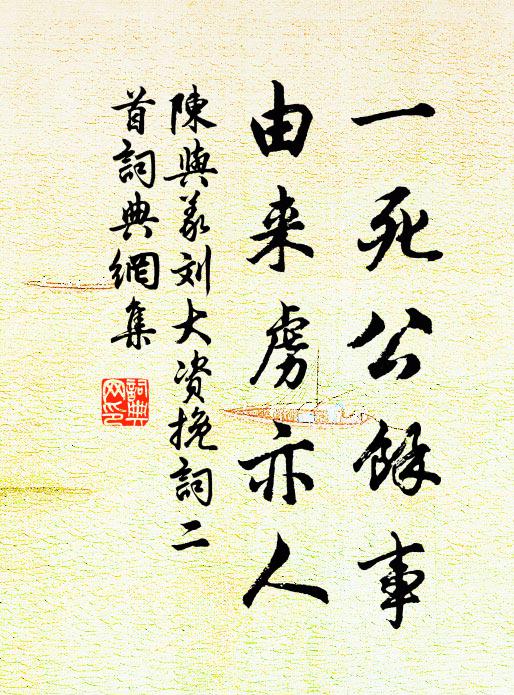 一死公餘事
由来虜亦人
陳與義刘大資挽詞二
首詞典網集
詞典
网印